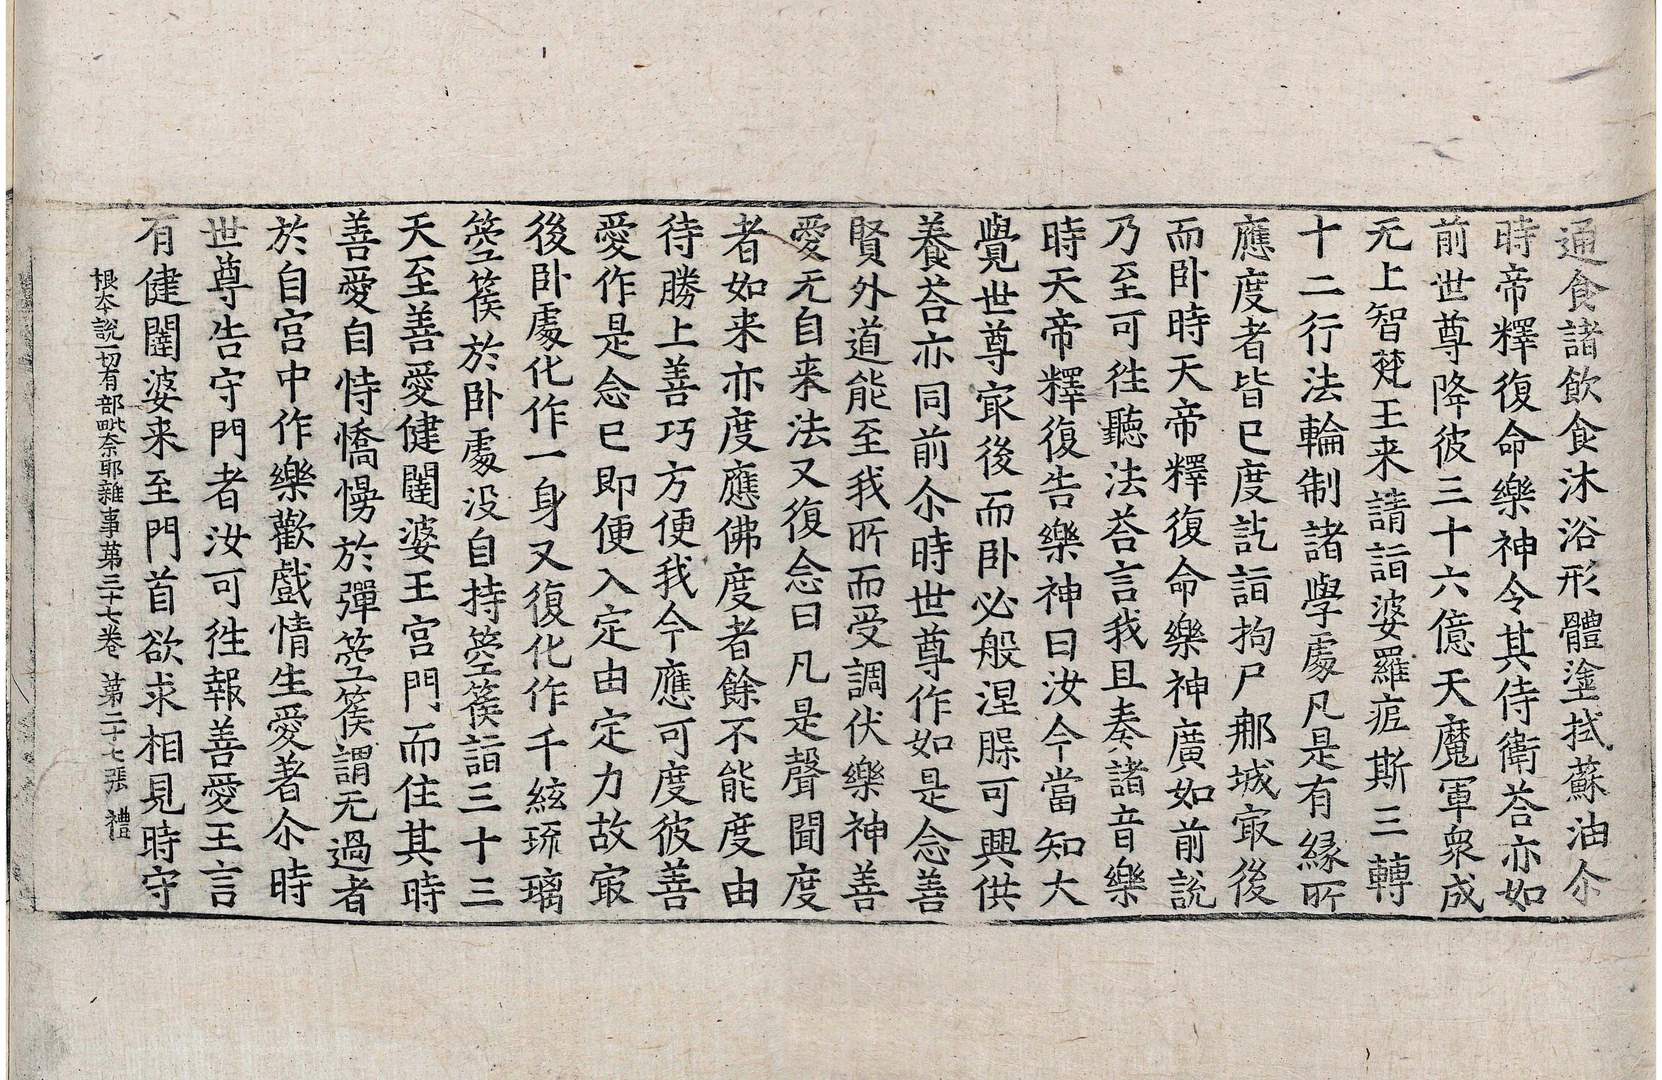 通食諸飲食沐浴形體塗拭蘇油尒
時帝釋復命樂神令其侍衛荅亦如
前世尊降彼三十六億天魔軍衆成
无上智梵王来請詣婆羅痆斯三轉
十二行法輪制諸學處凡是有縁所
應度者皆已度訖詣拘尸那城㝡後
而卧時天帝釋復命樂神廣如前說
乃至可徃聽法荅言我且奏諸音樂
時天帝釋復告樂神曰汝今當知大
覺世尊㝡後而卧必般涅槃可興供
養荅亦同前尒時世尊作如是念善
賢外道能至我所而受調伏樂神善
愛无自来法又復念曰凡是聲聞度
者如来亦度應佛度者餘不能度由
待勝上善巧方便我今應可度彼善
愛作是念已即便入定由定力故㝡
後卧處化作一身又復化作千絃琉璃
箜篌於卧處没自持箜篌詣三十三
天至善愛健闥婆王宮門而住其時
善愛自恃憍慢於彈箜篌謂无過者
於自宮中作樂歡戲情生愛著尒時
世尊告守門者汝可徃報善愛王言
有健闥婆来至門首欲求相見時守
根本說一切有部毗奈耶雜事苐三十七卷 苐二十七張 禮